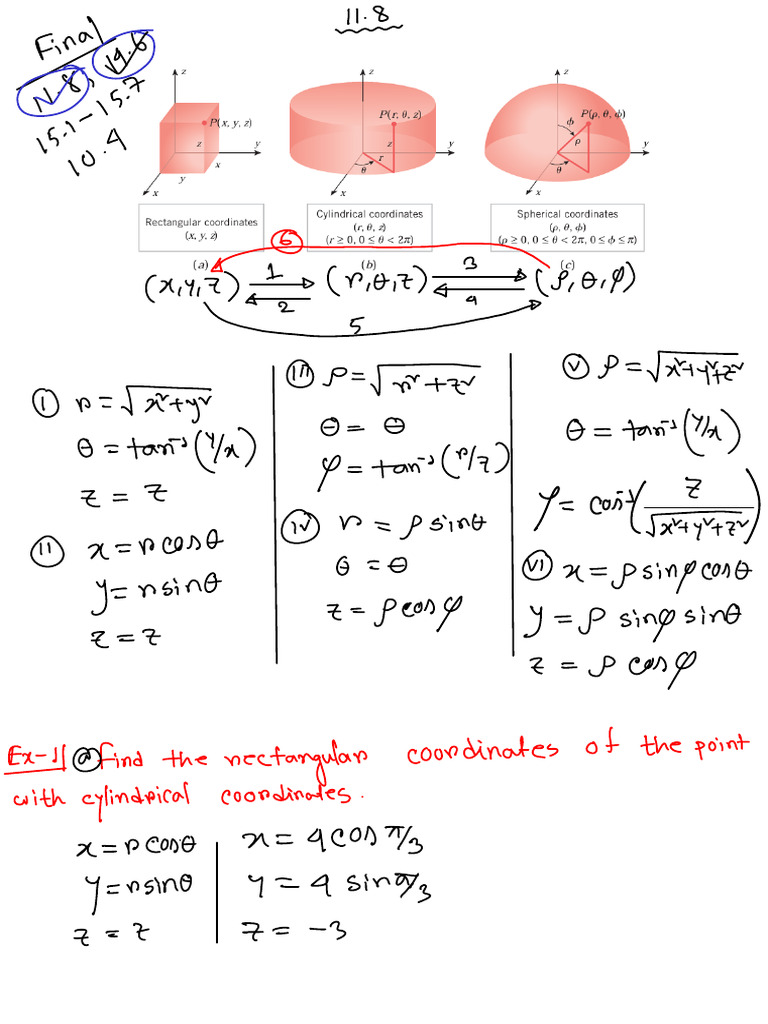 11.8
Final
11.8, 14.6
15.1-15.7
10.4
z
P(x, y, z)
z
y
x
y
x
z
P(r, θ, z)
z
y
r
θ
x
z
P(ρ, θ, ϕ)
ϕ
ρ
y
θ
x
Rectangular coordinates
(x, y, z)
Cylindrical coordinates
(r, θ, z)
(r ≥ 0, 0 ≤ θ < 2π)
Spherical coordinates
(ρ, θ, ϕ)
(ρ ≥ 0, 0 ≤ θ < 2π, 0 ≤ ϕ ≤ π)
6
(a) (b) (c)
(x,y,z) 1 (r,θ,z) 3 (ρ,θ,φ)
2 4
5
i r = √x²+y²
θ = tan⁻¹(y/x)
z = z
ii x = r cosθ
y = r sinθ
z = z
iii ρ = √r²+z²
θ = θ
φ = tan⁻¹(r/z)
iv r = ρ sinθ
θ = θ
z = ρ cosφ
v ρ = √x²+y²+z²
θ = tan⁻¹(y/x)
φ = cos⁻¹(z/√x²+y²+z²)
vi x = ρ sinφ cosθ
y = ρ sinφ sinθ
z = ρ cosφ
Ex-1| a Find the rectangular coordinates of the point
with cylindrical coordinates.
x = r cosθ
y = r sinθ
z = z
x = 4 cos π/3
y = 4 sin π/3
z = -3